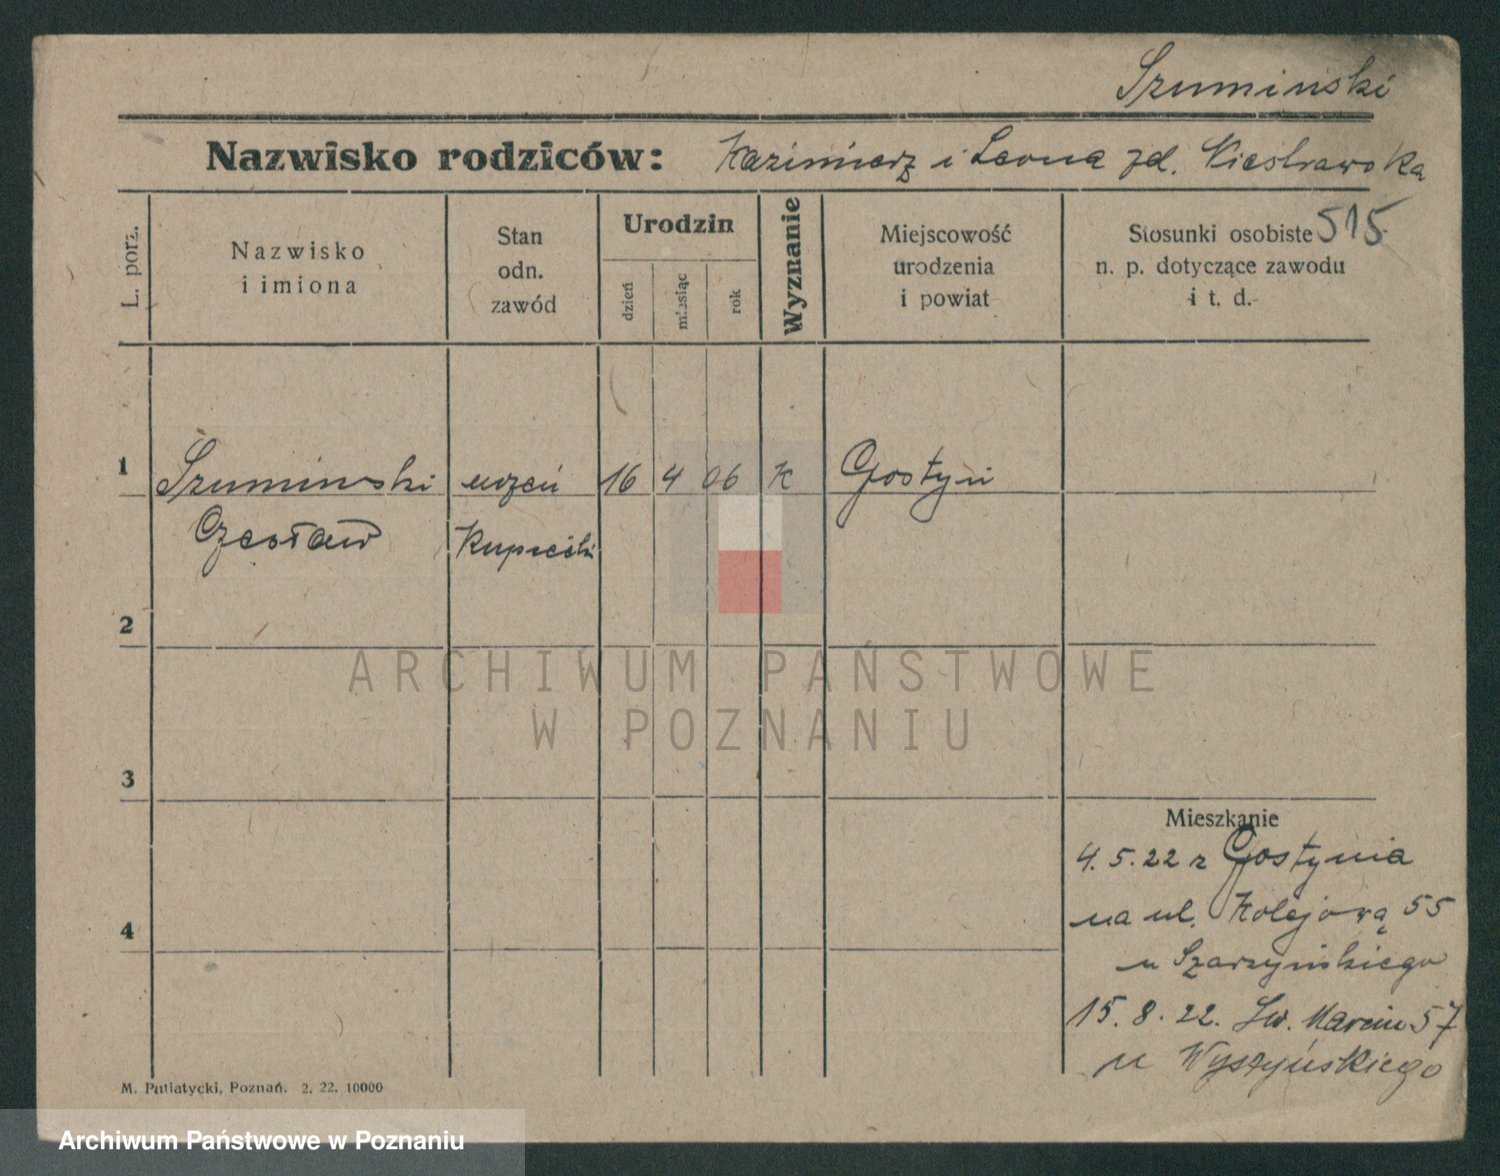 Szuminski
Nazwisko rodziców: Kazimierz i Leona zd.
L. porz.
Nazwisko
i imiona
Stan
odn.
zawód
Urodzin
dzień
miesiąc
rok
Wyznanie
Miejscowość
urodzenia
i powiat
515
Stosunki osobiste
n. p. dotyczące zawodu
i t. d.
1 Szuminski uczeń 16 4 06 K Gostyń
Czesław Kupiecki
2
ARCHIWUM PAŃSTWOWE
W POZNANIU
3
Mieszkanie
4. 5. 22 z Gostynia
na ul. Kolejową 55
4
u Szarzyńskiego
15. 8. 22. Św. Marcin 57
u Wyszyńskiego
M. Putiatycki, Poznań. 2. 22. 10000
Archiwum Państwowe w Poznaniu